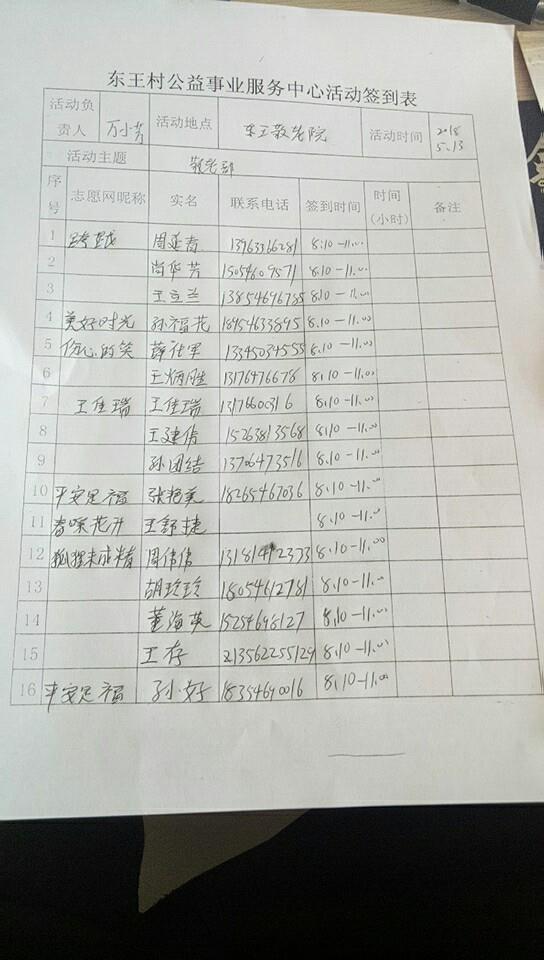 东王村公益事业服务中心活动签到表
活动负责人 万小芳 活动地点 东王敬老院 活动时间 2018 5.13
活动主题 敬老部
序号 志愿网昵称 实名 联系电话 签到时间 时间(小时) 备注
1 跨越 周延春 13963366281 8.10-11.00
2 尚华芳 15054609571 8.10-11.00
3 王立兰 13854696785 8.10-11.00
4 美好时光 孙福花 18954633895 8.10-11.00
5 伤心的笑 薛仕军 13345034555 8.10-11.00
6 王炳胜 13176476678 8.10-11.00
7 王佳瑞 王佳瑞 1317660316 8.10-11.00
8 王建倩 15263813568 8.10-11.00
9 孙团结 13706473516 8.10-11.00
10 平安是福 张艳美 18265467036 8.10-11.00
11 春暖花开 王舒捷 8.10-11.00
12 狐狸未成精 周伟伟 13181412373 8.10-11.00
13 胡玲玲 18054612781 8.10-11.00
14 董海英 15254698127 8.10-11.00
15 王存 13562255129 8.10-11.00
16 平安是福 孙好 18354690016 8.10-11.00